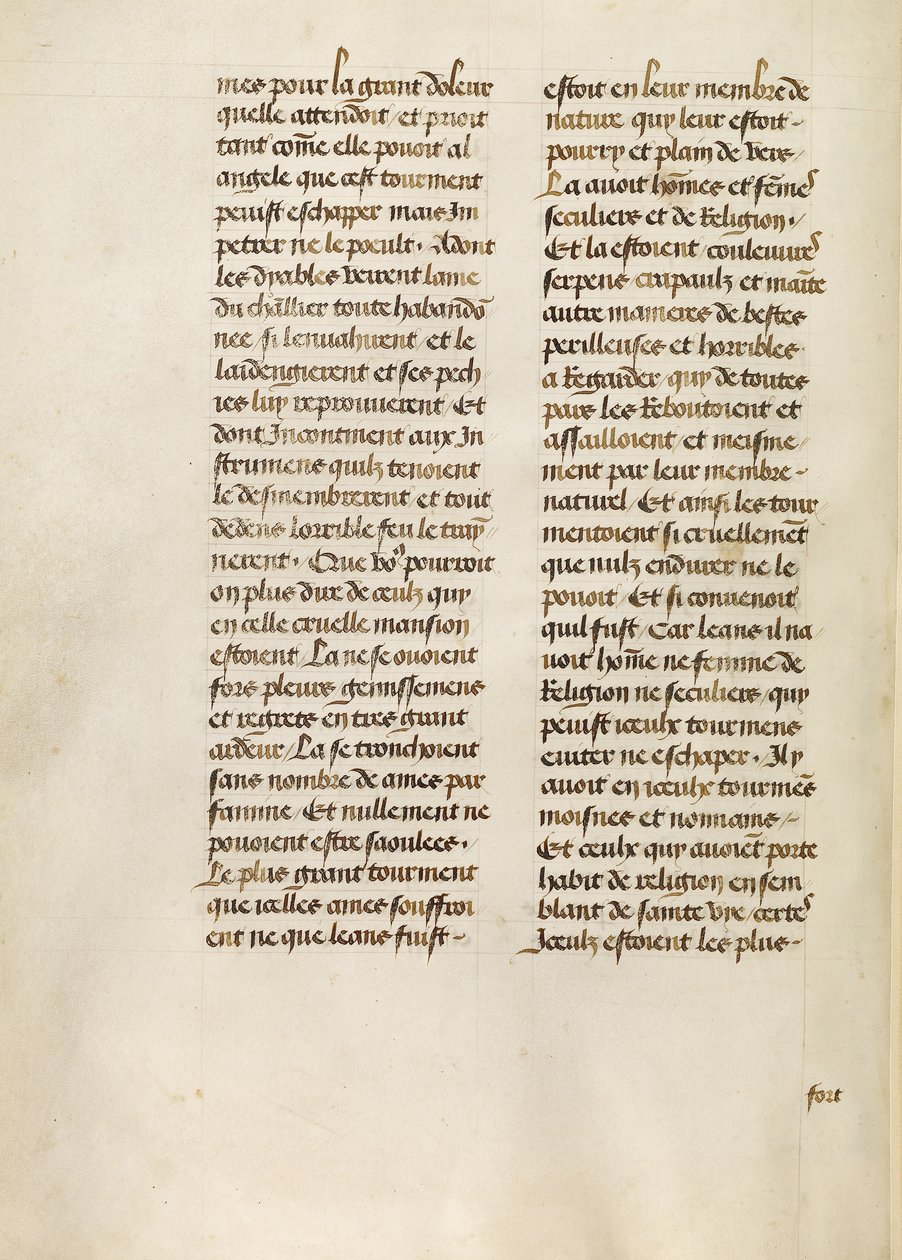 mes pour la grant doleur
quelle attendoit / et prioit
tant cõme elle pouoit al
angele que cest tourment
peuist eschapper mais Im
petrer ne le poeult · Adont
les dyables veirent lame
du chãllier toute habandõ
nee / si lenuahirent / et le
laidengierent et ses pech
ies luy reprouuerent / Et
dont Incontinent aux In
strumens quilz tenoient
le desmembrerent / et tout
dedens lorrible feu le tray
nerent · Que vo⁹ pourroit
on plus dire de ceulz quy
en celle cruelle mansion
estoient / La ne se ouoient
fors pleurs gemissemens
et regrets en tres grant
ardeur / La se tronchoient
sans nombre de ames par
famine / Et nullement ne
pouoient estre saoulees ·
Le plus grant tourment
que icelles ames souffroi
ent ne que leans fuist -
estoit en leur membre de
nature quy leur estoit -
pourry et plain de vers /
La auoit hõmes et fẽmes
seculiers et de Religion ·
Et la estoient / couleuures
serpens crapaulz et mainte
autre manieres de bestes
perilleuses et horribles
a Regarder / quy de toutes
pars les Reboutoient et
assailloient / et meisme
ment par leur membre -
naturel / Et ainsi les tour
mentoient si cruellemẽt
que nulz endurer ne le
pouoit / Et si conuenoit
quil fust / Car leans il na
uoit hõme ne femme de
Religion ne seculiers / quy
peuist iceulx tourmens
euiter ne eschaper · Il y
auoit en iceulx tourmẽs
moisnes et nonnains /-
Et ceulx quy auoiẽt porte
habit de religion en sem
blant de sainte vie / certes
Iceulz estoient les plus -
fort